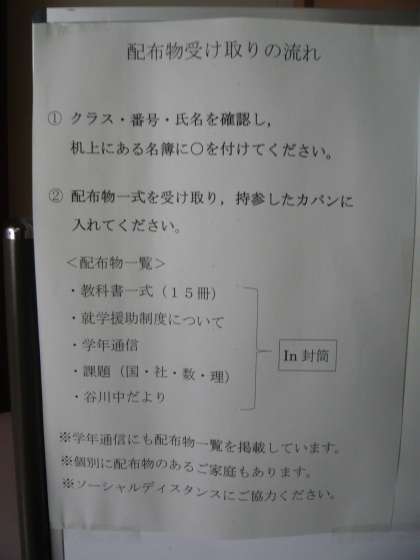 配布物受け取りの流れ
① クラス・番号・氏名を確認し，
机上にある名簿に○を付けてください。
② 配布物一式を受け取り，持参したカバンに
入れてください。
＜配布物一覧＞
・教科書一式（１５冊）
・就学援助制度について
・学年通信
・課題（国・社・数・理）
・谷川中だより
In 封筒
※学年通信にも配布物一覧を掲載しています。
※個別に配布物のあるご家庭もあります。
※ソーシャルディスタンスにご協力ください。